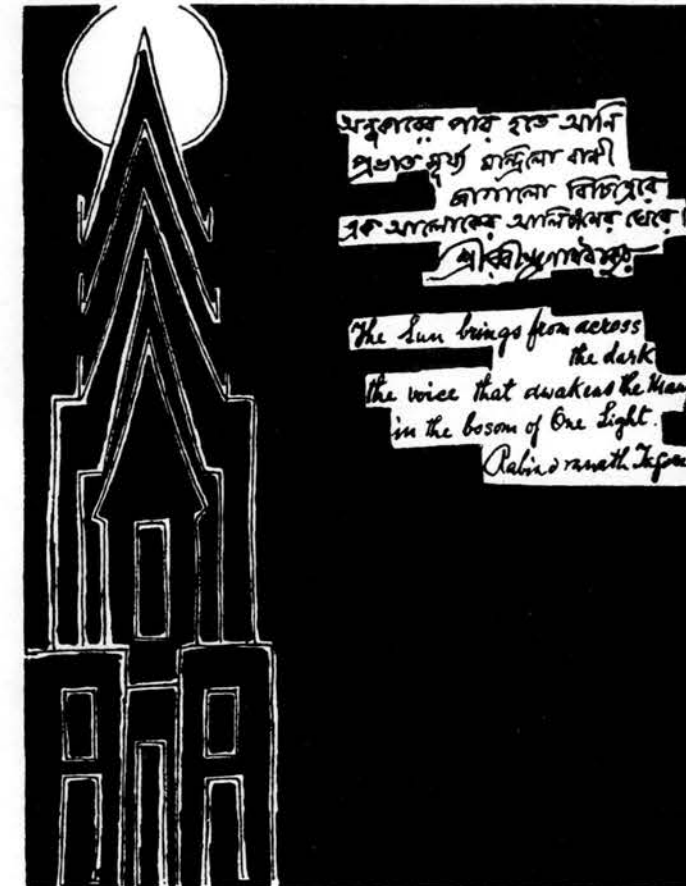 অন্ধকারের পার হতে আনি
প্রভাত সূর্য্য মন্দ্রিলো বাণী
জাগালো বিচিত্রেরে
এক আলোকের আলিঙ্গনের ঘেরে
শ্রীরবীন্দ্রনাথ ঠাকুর
The Sun brings from across
the dark
the voice that awakens the Many
in the bosom of One Light.
Rabindranath Tagore